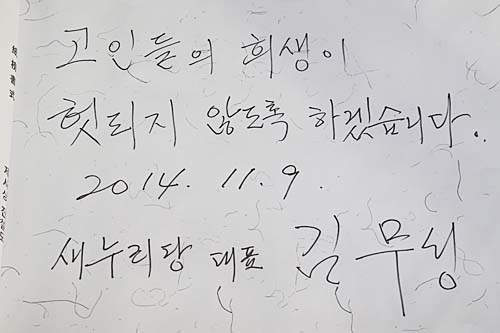 고인들의 희생이
헛되지 않도록 하겠습니다.
2014. 11. 9.
새누리당 대표 김무성